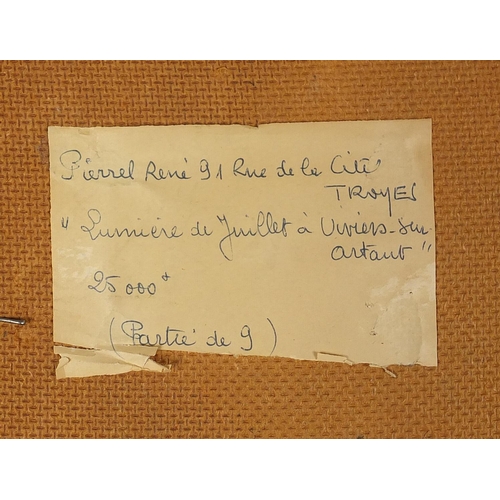 Pierrel René 91 Rue de la Cité
TROYES
"Lumière de Juillet à Viviers-sur-
Artaut"
25 000
(Partie de 9)